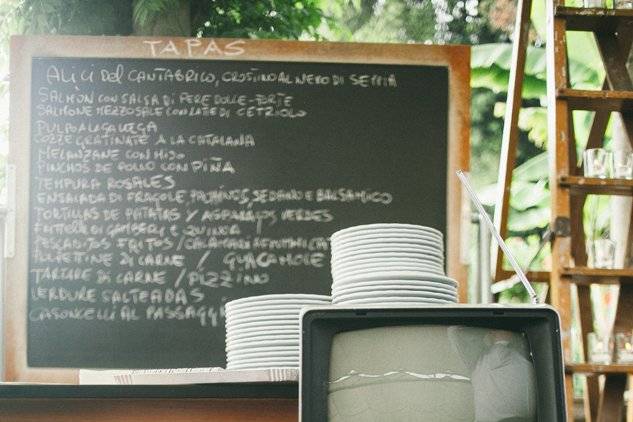 TAPAS
ALICI DEL CANTABRICO, CROSTINO AL NERO DI SEPPIA
SALMÓN CON SALSA DI PERE DOLCE-FORTE
SALMONE MEZZO SALE CON LATE DI CETRIOLO
PULPO A LA GALLEGA
COZZE GRATINATE A LA CATALANA
MELANZANE CON MIJO
PINCHOS DE POLLO CON PIÑA
TEMPURA ROSALES
ENSALADA DI FRAGOLE, SEDANO E BALSAMICO
TORTILLAS DE PATATAS Y ASPARAGUS VERDES
DI GAMBERI E QUINOA
PESCADITOS FRITOS / CALAMARI
POLPETTINE DI CARNE / GUACAMOLE
TARTARE DI CARNE / PIZZINO
VERDURE SALTEADAS
CASONCELLI AL PASSAGGI